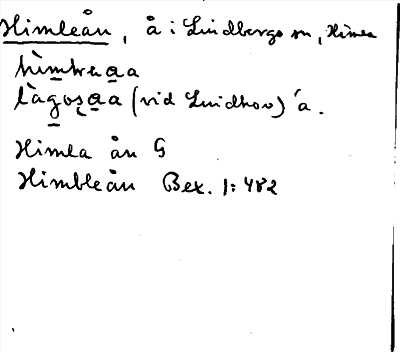 Himleån, å i Lindbergs sn, Himea
hìmbraa
làgosaa (vid Lindhov) 'a.
Himla ån G
Himbleån Bex. 1:482